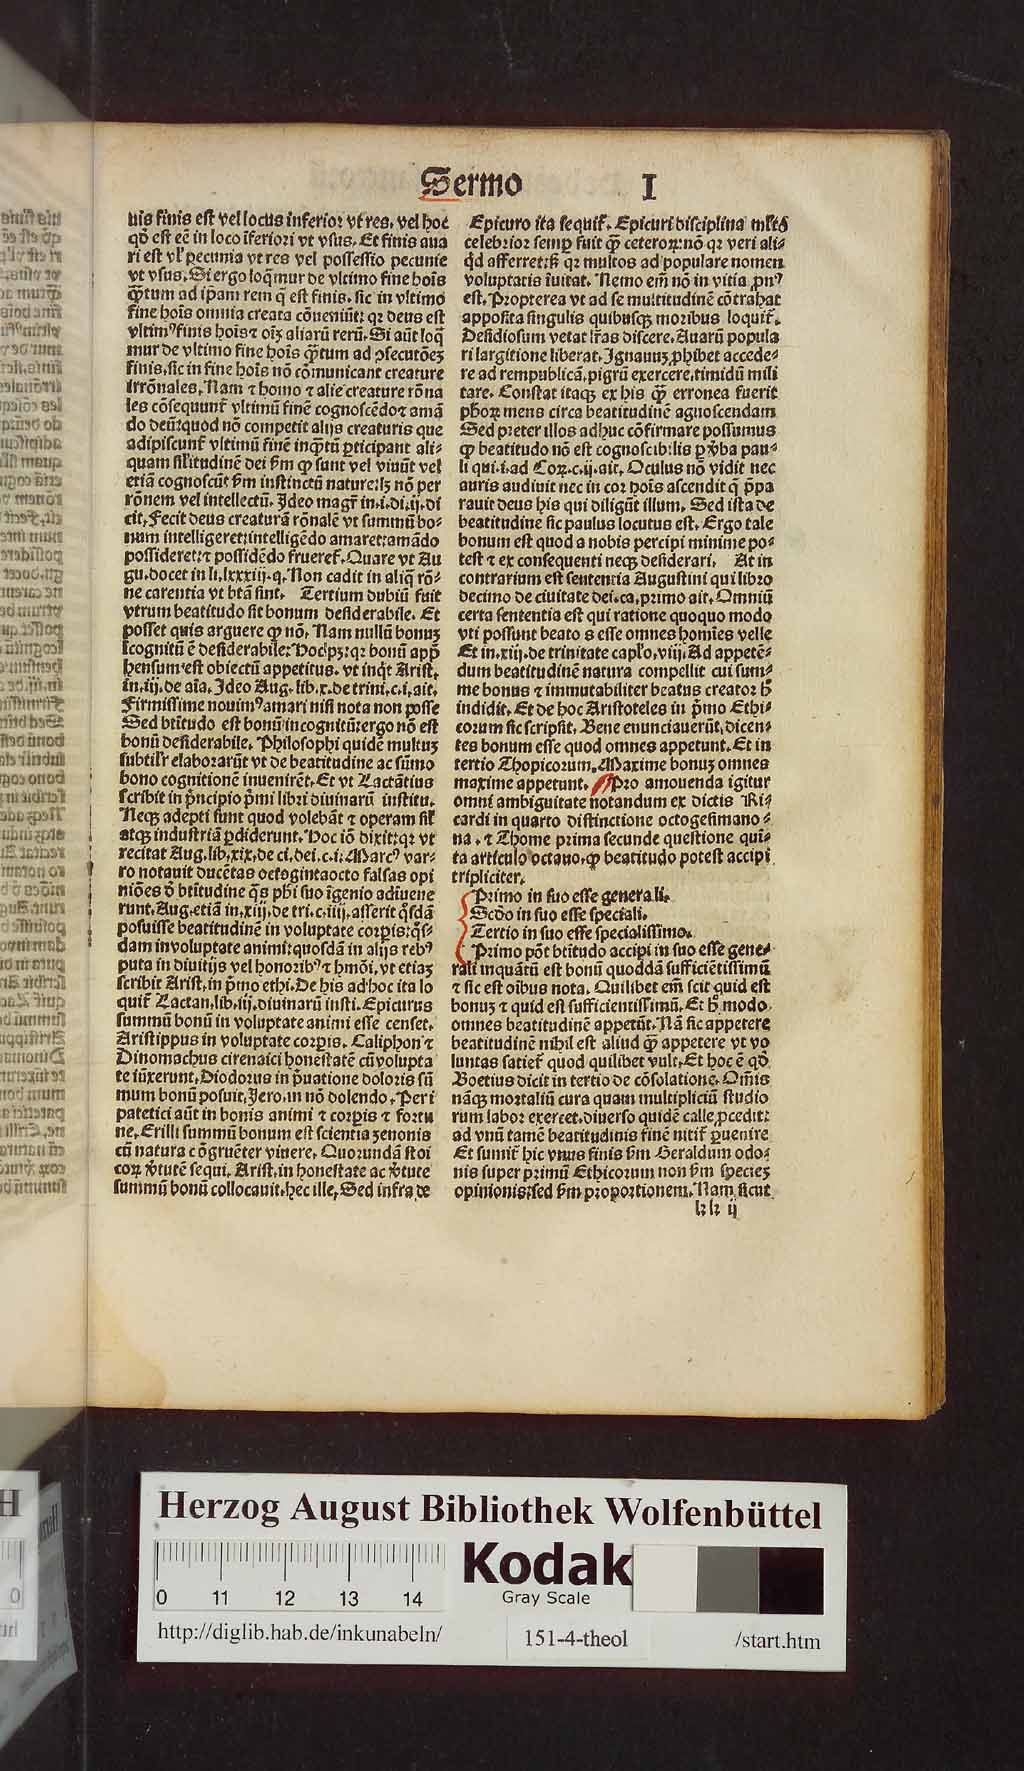 Sermo I
uis finis est vel locus inferior vt res, vel hoc
qd̓ est eē in loco īferiori vt vsus. Et finis aua
ri est vl' pecunia vt res vel possessio pecunie
vt vsus. Si ergo loq̄mur de vltimo fine hoīs
q̄ꝫtum ad ip̄am rem q̄ est finis. sic in vltimo
fine hoīs omnia creata cōueniūt: qꝛ deus est
vltimꝰ finis hoīs ⁊ oīꝫ aliarū rerū. Si aūt loq̄
mur de vltimo fine hoīs q̄ꝫtum ad ꝯsecutōeꝫ
finis, sic in fine hoīs nō cōmunicant creature
irrōnales. Nam ⁊ homo ⁊ alie creature rōna
les cōsequunt̃ vltimū finē cognoscēdo ⁊ amā
do deū: quod nō competit alijs creaturis que
adipiscunt̃ vltimū finē inq̄tū ꝑticipant ali⸗
quam sil'itudinē dei ẜm ꝙ sunt vel viuūt vel
etiā cognoscūt ẜm instinctū nature: lꝫ nō per
rōnem vel intellectū. Ideo magr̄ in.i.di.ij.di
cit, Fecit deus creaturā rōnalē vt summū bo⸗
num intelligeret: intelligēdo amaret: amādo
possideret: ⁊ possidēdo frueret̃. Quare vt Au
gu.docet in li.lxxxiij.q. Non cadit in aliq̄ rō⸗
ne carentia vt btā sint. Tertium dubiū fuit
vtrum beatitudo sit bonum desiderabile. Et
posset quis arguere ꝙ nō. Nam nullū bonuꝫ
īcognitū ē desiderabile: Hoc pꝫ: qꝛ bonū app̄
hensum est obiectū appetitus. vt inq̄t Arist.
in.iij.de aīa. Ideo Aug.lib.x.de trini.c.i.ait.
Firmissime nouimꝰ amari nisi nota non posse
Sed btītudo est bonū incognitū: ergo nō est
bonū desiderabile. Philosophi quidē multuꝫ
subtilr̄ elaborarūt vt de beatitudine ac sūmo
bono cognitionē inuenirēt. Et vt Lactātius
scribit in p̄ncipio p̄mi libri diuinarū institu.
Neqꝫ adepti sunt quod volebāt ⁊ operam sil'
atqꝫ industriā ꝑdiderunt. Hoc iō dixit: qꝛ vt
recitat Aug.lib.xix.de ci.dei.c.i: Marcꝰ var⸗
ro notauit ducētas octogintaocto falsas opi
niōes d̓ btītudine q̄s ph̓i suo īgenio adiuene
runt. Aug.etiā in.xiij.de tri.c.iiij.asserit q̄sdā
posuisse beatitudinē in voluptate corpis: q̄s⸗
dam in voluptate animi: quosdā in alijs rebꝰ
puta in diuitijs vel honoribꝰ ⁊ hmōi, vt etiaꝫ
scribit Arist. in p̄mo ethi. De his adhoc ita lo
quit̃ Lactan.lib.iij.diuinarū insti. Epicurus
summū bonū in voluptate animi esse censet.
Aristippus in voluptate corpis. Caliphon ⁊
Dinomachus cirenaici honestatē cū volupta
te iūxerunt. Diodorus in p̄uatione doloris sū
mum bonū posuit. Iero.in nō dolendo. Peri
patetici aūt in bonis animi ⁊ corpis ⁊ fortu
ne. Erilli summū bonum est scientia zenonis
cū natura cōgruēter viuere. Quorundā stoi
coꝝ v̓tutē sequi. Arist.in honestate ac v̓tute
summū bonū collocauit. hec ille. Sed infra de
Epicuro ita sequit̃. Epicuri disciplina mltō
celebrior semꝑ fuit q̄ꝫ ceteroꝝ: nō qꝛ veri ali⸗
qd̓ afferret: ẜꝫ qꝛ multos ad populare nomen
voluptatis īuitat. Nemo em̄ nō in vitia ꝓnꝰ
est. Propterea vt ad se multitudinē cōtrahat
apposita singulis quibusqꝫ moribus loquit̃.
Desidiosum vetat lr̄as discere. Auarū popula
ri largitione liberat. Ignauuꝫ ꝓhibet accede⸗
re ad rempublicā, pigrū exercere, timidū mili
tare. Constat itaqꝫ ex his q̄ꝫ erronea fuerit
ph̓oꝝ mens circa beatitudinē agnoscendam
Sed preter illos adhuc cōfirmare possumus
ꝙ beatitudo nō est cognoscibilis ꝑ v̓ba pau⸗
li qui.i.ad Coꝝ.c.ij.ait. Oculus nō vidit nec
auris audiuit nec in cor hoīs ascendit q̄ p̄pa
rauit deus his qui diligūt illum. Sed ista de
beatitudine sic paulus locutus est. Ergo tale
bonum est quod a nobis percipi minime po⸗
test ⁊ ex consequenti neqꝫ desiderari. At in
contrarium est sententia Augustini qui libro
decimo de ciuitate dei.ca.primo ait. Omniū
certa sententia est qui ratione quoquo modo
vti possunt beatos esse omnes homīes velle
Et in.xiij.de trinitate caplo.viij. Ad appetē⸗
dum beatitudinē natura compellit cui sum⸗
me bonus ⁊ immutabiliter beatus creator h̄
indidit. Et de hoc Aristoteles in p̄mo Ethi⸗
corum sic scripsit. Bene enunciauerūt, dicen⸗
tes bonum esse quod omnes appetunt. Et in
tertio Thopicorum. Maxime bonuꝫ omnes
maxime appetunt. Pro amouenda igitur
omni ambiguitate notandum ex dictis Ri⸗
cardi in quarto distinctione octogesimano⸗
na. ⁊ Thome prima secunde questione quī⸗
ta articulo octauo. ꝙ beatitudo potest accipi
tripliciter.
Primo in suo esse generali.
Scdo in suo esse speciali.
Tertio in suo esse specialissimo.
Primo pōt btītudo accipi in suo esse gene⸗
rali inquātū est bonū quoddā sufficiētissimū
⁊ sic est oībus nota. Quilibet em̄ scit quid est
bonuꝫ ⁊ quid est sufficientissimū. Et h̄ modo
omnes beatitudinē appetūt. Nā sic appetere
beatitudinē nihil est aliud q̄ꝫ appetere vt vo
luntas satiet̃ quod quilibet vult. Et hoc ē qd̓
Boetius dicit in tertio de cōsolatione. Om̄is
nāqꝫ mortaliū cura quam multipliciū studio
rum labor exercet. diuerso quidē calle ꝓcedit:
ad vnū tamē beatitudinis finē nitit̃ ꝑuenire
Et sumit̃ hic vnus finis ẜm Geraldum odo⸗
nis super primū Ethicorum non ẜm specieꝫ
opinionis: sed ẜm proportionem. Nam sicut
kk ij
Herzog August Bibliothek Wolfenbüttel
Kodak
Gray Scale
0 11 12 13 14
http://diglib.hab.de/inkunabeln/
151-4-theol
/start.htm